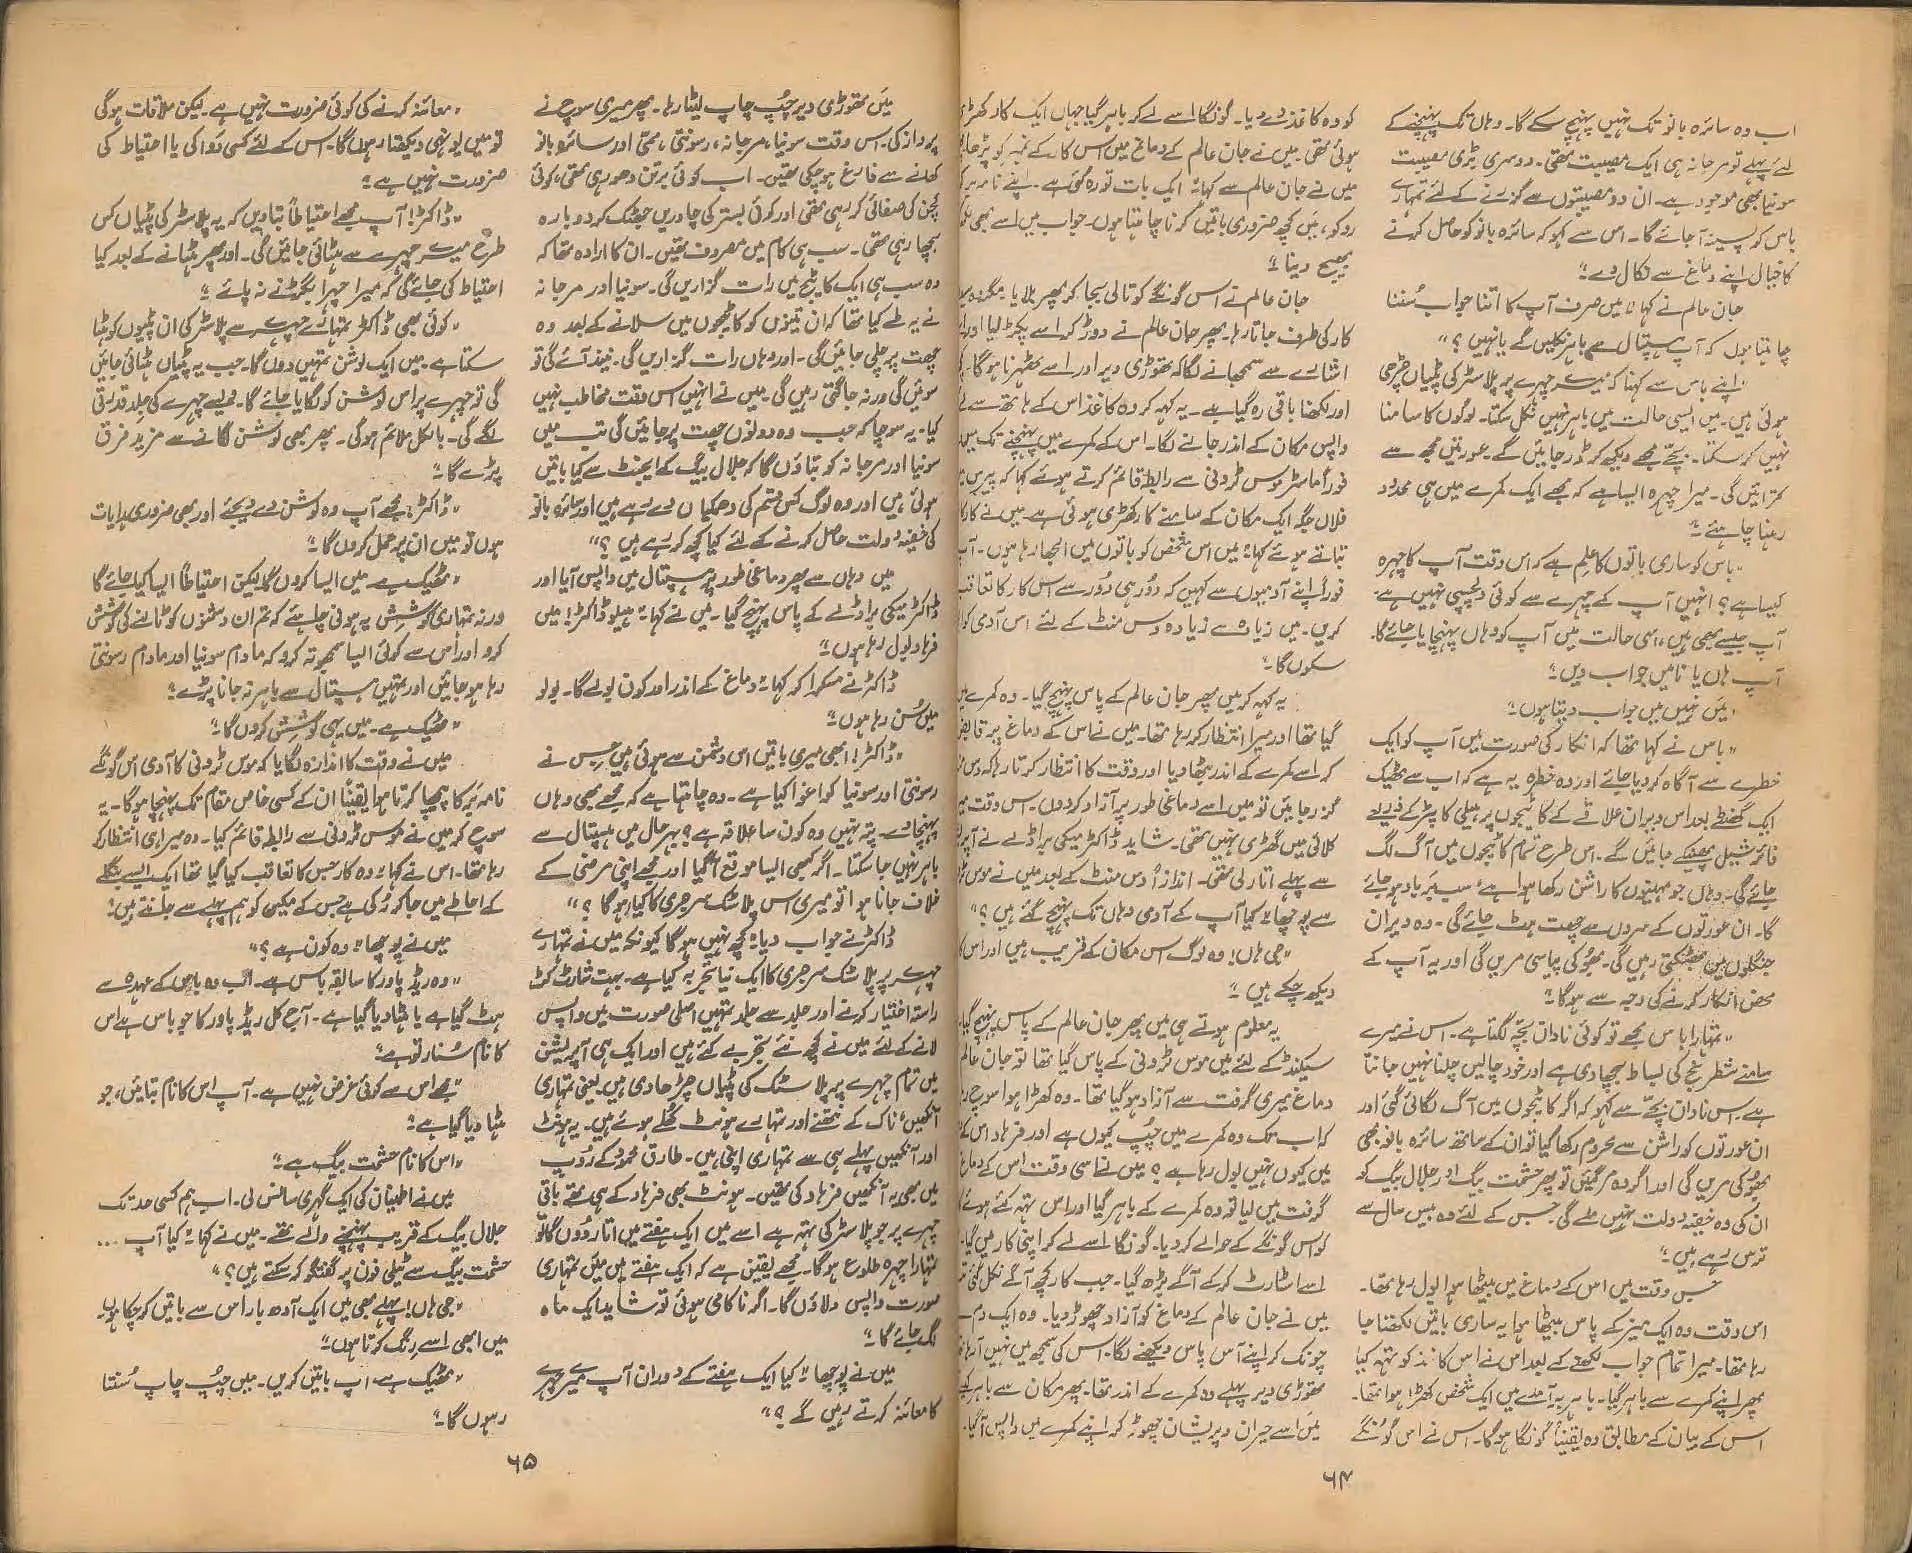 اب وہ سائرہ بانو تک نہیں پہنچ سکے گا۔ وہاں تک پہنچنے کے
لئے پہلے تو مرجانہ ہی ایک مصیبت تھی۔ دوسری بڑی مصیبت
سونیا بھی موجود ہے۔ ان دو مصیبتوں سے گزرنے کے لئے تمہارے
باس کو پسینہ آجائے گا۔ اس سے کہو کہ سائرہ بانو کو حاصل کرنے
کا خیال اپنے دماغ سے نکال دے۔"
جان عالم نے کہا "میں صرف آپ کا اتنا جواب سُننا
چاہتا ہوں کہ آپ ہسپتال سے باہر نکلیں گے یا نہیں؟"
"اپنے باس سے کہنا کہ میرے چہرے پر پلاسٹر کی پٹیاں چڑھی
ہوئی ہیں۔ میں ایسی حالت میں باہر نہیں نکل سکتا۔ لوگوں کا سامنا
نہیں کر سکتا۔ بچے مجھے دیکھ کر ڈر جائیں گے۔ عورتیں مجھ سے
کترائیں گی۔ میرا چہرہ ایسا ہے کہ مجھے ایک کمرے میں ہی محدود
رہنا چاہئے۔"
"باس کو ساری باتوں کا علم ہے کہ اس وقت آپ کا چہرہ
کیسا ہے؟ انہیں آپ کے چہرے سے کوئی دلچسپی نہیں ہے۔
آپ جیسے بھی ہیں، اسی حالت میں آپ کو وہاں پہنچایا جائے گا۔
آپ ہاں یا نا میں جواب دیں۔"
"میں نہیں میں جواب دیتا ہوں۔"
"باس نے کہا تھا کہ انکار کی صورت میں آپ کو ایک
خطرے سے آگاہ کر دیا جائے اور وہ خطرہ یہ ہے کہ اب سے ٹھیک
ایک گھنٹے بعد اس ویران علاقے کے کاٹیجوں پر ہیلی کاپٹر کے ذریعے
فائر شیل پھینکے جائیں گے۔ اس طرح تمام کاٹیجوں میں آگ لگ
جائے گی۔ وہاں جو مہینوں کا راشن رکھا ہوا ہے سب برباد ہو جائے
گا۔ ان عورتوں کے سروں سے چھت ہٹ جائے گی۔ وہ ویران
جنگلوں میں بھٹکتی رہیں گی۔ بھوکی پیاسی مریں گی اور یہ آپ کے
محض انکار کرنے کی وجہ سے ہوگا۔"
"تمہارا باس مجھے تو کوئی نادان بچّہ لگتا ہے۔ اس نے میرے
سامنے شطرنج کی بساط بچھا دی ہے اور خود چالیں چلنا نہیں جانتا
ہے۔ اس نادان بچّے سے کہو کہ اگر کاٹیجوں میں آگ لگائی گئی اور
ان عورتوں کو راشن سے محروم رکھا گیا تو ان کے ساتھ سائرہ بانو بھی
بھوکی مریں گی اور اگر وہ مر گئیں تو پھر حشمت بیگ اور جلال بیگ کو
ان کی وہ خفیہ دولت نہیں ملے گی جس کے لئے وہ بیس سال سے
ترس رہے ہیں۔"
جس وقت میں اس کے دماغ میں بیٹھا ہوا بول رہا تھا۔
اس وقت وہ ایک میز کے پاس بیٹھا ہوا یہ ساری باتیں لکھتا جا
رہا تھا۔ میرا تمام جواب لکھنے کے بعد اس نے اس کاغذ کو تہہ کیا
پھر اپنے کمرے سے باہر گیا۔ باہر برآمدے میں ایک شخص کھڑا ہوا تھا۔
اس کے بیان کے مطابق وہ یقیناً گونگا ہوگا۔ اس نے اس گونگے
کو وہ کاغذ دے دیا۔ گونگا اسے لے کر باہر گیا جہاں ایک کار کھڑی
ہوئی تھی۔ میں نے جان عالم کے دماغ میں اس کار کے نمبر کو پڑھا
میں نے جان عالم سے کہا "ایک بات تو رہ گئی ہے۔ اپنے نامہ بر کو
روکو، میں کچھ ضروری باتیں کرنا چاہتا ہوں۔ جواب میں اسے بھی
بھیج دینا۔"
جان عالم نے اس گونگے کو تالی بجا کر پھر بلایا مگر وہ
کار کی طرف جاتا رہا۔ پھر جان عالم نے دوڑ کر اسے پکڑ لیا اور
اشارے سے سمجھانے لگا کہ تھوڑی دیر اور اسے ٹھہرنا ہوگا۔
اور لکھنا باقی رہ گیا ہے۔ یہ کہہ کر وہ کاغذ اس کے ہاتھ سے لے
واپس مکان کے اندر جانے لگا۔ اس کے کمرے میں پہنچنے تک میں
فوراً ماسٹر موس ٹروئی سے رابطہ قائم کرتے ہوئے کہا کہ پیرس
فلاں جگہ ایک مکان کے سامنے کار کھڑی ہوئی ہے۔ میں نے کار کا
بتاتے ہوئے کہا "میں اس شخص کو باتوں میں الجھا رہا ہوں۔ آپ
فوراً اپنے آدمیوں سے کہیں کہ دُور ہی دُور سے اس کار کا تعاقب
کریں۔ میں زیادہ سے زیادہ دس منٹ کے لئے اس آدمی کو
سکوں گا۔"
یہ کہہ کر میں پھر جان عالم کے پاس پہنچ گیا۔ وہ کمرے میں
گیا تھا اور میرا انتظار کر رہا تھا۔ میں نے اس کے دماغ پر قابض
کر اسے کمرے کے اندر بٹھا دیا اور وقت کا انتظار کرتا رہا کہ دس
گزر جائیں تو میں اسے دماغی طور پر آزاد کر دوں۔ اس وقت
کلائی میں گھڑی نہیں تھی۔ شاید ڈاکٹر میکی براڈلے نے آپریشن
سے پہلے اتار لی تھی۔ اندازاً دس منٹ کے بعد میں نے موس
سے پوچھا "کیا آپ کے آدمی وہاں تک پہنچ گئے ہیں؟"
"جی ہاں! وہ لوگ اس مکان کے قریب ہیں اور اس
دیکھ چکے ہیں۔"
یہ معلوم ہوتے ہی میں پھر جان عالم کے پاس پہنچ گیا۔
سیکنڈ کے لئے میں موس ٹروئی کے پاس گیا تھا تو جان عالم
دماغ میری گرفت سے آزاد ہو گیا تھا۔ وہ کھڑا ہوا سوچ رہا
کہ اب تک وہ کمرے میں چُپ کیوں ہے اور فرہاد اس کے
میں کیوں نہیں بول رہا ہے؟ میں نے اسی وقت اس کے دماغ
گرفت میں لیا تو وہ کمرے کے باہر گیا اور اس تہہ کئے ہوئے
کو اس گونگے کے حوالے کر دیا۔ گونگا اسے لے کر اپنی کار میں گیا۔
اسے اسٹارٹ کر کے آگے بڑھ گیا۔ جب کار کچھ آگے نکل گئی
میں نے جان عالم کے دماغ کو آزاد چھوڑ دیا۔ وہ ایک دم سے
چونک کر اپنے آس پاس دیکھنے لگا۔ اس کی سمجھ میں نہیں آ رہا
تھوڑی دیر پہلے وہ کمرے کے اندر تھا۔ پھر مکان سے باہر کیسے
میں اسے حیران و پریشان چھوڑ کر اپنے کمرے میں واپس آگیا۔
۶۴
میں تھوڑی دیر چُپ چاپ لیٹا رہا۔ پھر میری سوچ نے
پرواز کی۔ اس وقت سونیا، مرجانہ، رسونتی، ممّی اور سائرہ بانو
کھانے سے فارغ ہو چکی تھیں۔ اب کوئی برتن دھو رہی تھی، کوئی
کچن کی صفائی کر رہی تھی اور کوئی بستر کی چادریں جھٹک کر دوبارہ
بچھا رہی تھی۔ سب ہی کام میں مصروف تھیں۔ ان کا ارادہ تھا کہ
وہ سب ہی ایک کاٹیج میں رات گزاریں گی۔ سونیا اور مرجانہ
نے یہ طے کیا تھا کہ ان تینوں کو کاٹیجوں میں سلانے کے بعد وہ
چھت پر چلی جائیں گی۔ اور وہاں رات گزاریں گی۔ نیند آئے گی تو
سوئیں گی ورنہ جاگتی رہیں گی۔ میں نے انہیں اس وقت مخاطب نہیں
کیا۔ یہ سوچا کہ جب وہ دونوں چھت پر جائیں گی تب میں
سونیا اور مرجانہ کو بتاؤں گا کہ جلال بیگ کے ایجنٹ سے کیا باتیں
ہوئی ہیں اور وہ لوگ کس قسم کی دھمکیاں دے رہے ہیں اور سائرہ بانو
کی خفیہ دولت حاصل کرنے کے لئے کیا کچھ کر رہے ہیں؟"
میں وہاں سے پھر دماغی طور پر ہسپتال میں واپس آیا اور
ڈاکٹر میکی براڈلے کے پاس پہنچ گیا۔ میں نے کہا "ہیلو ڈاکٹر! میں
فرہاد بول رہا ہوں۔"
ڈاکٹر نے مسکرا کر کہا "دماغ کے اندر اور کون بولے گا۔ بولو
میں سُن رہا ہوں۔"
"ڈاکٹر! ابھی میری باتیں اس دشمن سے ہوئی ہیں جس نے
رسونتی اور سونیا کو اغوا کیا ہے۔ وہ چاہتا ہے کہ مجھے بھی وہاں
پہنچا دے۔ پتہ نہیں وہ کون سا علاقہ ہے؟ بہرحال میں ہسپتال سے
باہر نہیں جا سکتا۔ اگر کبھی ایسا موقع آ گیا اور مجھے اپنی مرضی کے
خلاف جانا ہوا تو میری اس پلاسٹک سرجری کا کیا ہوگا؟"
ڈاکٹر نے جواب دیا "کچھ نہیں ہوگا کیونکہ میں نے تمہارے
چہرے پر پلاسٹک سرجری کا ایک نیا تجربہ کیا ہے۔ بہت شارٹ کٹ
راستہ اختیار کرنے اور جلد سے جلد تمہیں اصلی صورت میں واپس
لانے کے لئے میں نے کچھ نئے تجربے کئے ہیں اور ایک ہی آپریشن
میں تمام چہرے پر پلاسٹک کی پٹیاں چڑھا دی ہیں۔ یعنی تمہاری
آنکھیں، ناک کے نتھنے اور تمہارے ہونٹ کُھلے ہوئے ہیں۔ یہ ہونٹ
اور آنکھیں پہلے ہی سے تمہاری اپنی ہیں۔ طارق محمود کے رُوپ
میں بھی یہ آنکھیں فرہاد کی تھیں۔ ہونٹ بھی فرہاد کے ہی تھے باقی
چہرے پر جو پلاسٹر کی تہہ ہے اسے میں ایک ہفتے میں اتار دوں گا تو
تمہارا چہرہ طلوع ہوگا۔ مجھے یقین ہے کہ ایک ہفتے میں میں تمہاری
صورت واپس دلاؤں گا۔ اگر ناکامی ہوئی تو شاید ایک ماہ
لگ جائے گا۔"
میں نے پوچھا "کیا ایک ہفتے کے دوران آپ میرے چہرے
کا معائنہ کرتے رہیں گے؟"
"معائنہ کرنے کی کوئی ضرورت نہیں ہے۔ لیکن ملاقات ہوگی
تو میں یونہی دیکھتا رہوں گا۔ اس کے لئے کسی دوا کی یا احتیاط کی
ضرورت نہیں ہے۔"
"ڈاکٹر! آپ مجھے احتیاطاً بتا دیں کہ یہ پلاسٹر کی پٹیاں کس
طرح میرے چہرے سے ہٹائی جائیں گی۔ اور پھر ہٹانے کے بعد کیا
احتیاط کی جائے گی کہ میرا چہرا بگڑنے نہ پائے۔"
"کوئی بھی ڈاکٹر تمہارے چہرے سے پلاسٹر کی ان پٹیوں کو ہٹا
سکتا ہے۔ میں ایک لوشن تمہیں دوں گا۔ جب یہ پٹیاں ہٹائی جائیں
گی تو چہرے پر اس لوشن کو لگایا جائے گا۔ ویسے چہرے کی جلد قدرتی
لگے گی۔ بالکل ملائم ہوگی۔ پھر بھی لوشن لگانے سے مزید فرق
پڑے گا۔"
"ڈاکٹر! مجھے آپ وہ لوشن دے دیجئے اور بھی ضروری ہدایات
ہوں تو میں ان پر عمل کروں گا۔"
"ٹھیک ہے میں ایسا کروں گا لیکن احتیاطاً ایسا کیا جائے گا
ورنہ تمہاری کوشش یہ ہونی چاہئے کہ تم ان دشمنوں کو ٹالنے کی کوشش
کرو اور اُس سے کوئی ایسا سمجھوتہ کرو کہ مادام سونیا اور مادام رسونتی
رہا ہو جائیں اور تمہیں ہسپتال سے باہر نہ جانا پڑے۔"
"ٹھیک ہے۔ میں یہی کوشش کروں گا۔"
میں نے وقت کا اندازہ لگایا کہ موس ٹروئی کا آدمی اس گونگے
نامہ بر کا پیچھا کرتا ہوا یقیناً ان کے کسی خاص مقام تک پہنچا ہوگا۔ یہ
سوچ کر میں نے موس ٹروئی سے رابطہ قائم کیا۔ وہ میرا ہی انتظار کر
رہا تھا۔ اس نے کہا "وہ کار جس کا تعاقب کیا گیا تھا ایک ایسے بنگلے
کے احاطے میں جا کر رُکی ہے جس کے مکین کو ہم پہلے سے جانتے ہیں۔"
میں نے پوچھا "وہ کون ہے؟"
"وہ ریڈ پاور کا سابقہ باس ہے۔ اب وہ باس کے عہدہ سے
ہٹ گیا ہے یا ہٹا دیا گیا ہے۔ آج کل ریڈ پاور کا جو باس ہے اس
کا نام سُنار تو ہے۔"
"مجھے اس سے کوئی غرض نہیں ہے۔ آپ اس کا نام بتائیں، جو
ہٹا دیا گیا ہے۔"
"اس کا نام حشمت بیگ ہے۔"
میں نے اطمینان کی ایک گہری سانس لی۔ اب ہم کسی حد تک
جلال بیگ کے قریب پہنچنے والے تھے۔ میں نے کہا "کیا آپ ...
حشمت بیگ سے ٹیلی فون پر گفتگو کر سکتے ہیں؟"
"جی ہاں! پہلے بھی میں ایک آدھ بار اس سے باتیں کر چکا ہوں۔
میں ابھی اسے رِنگ کرتا ہوں۔"
"ٹھیک ہے آپ باتیں کریں۔ میں چُپ چاپ سُنتا
رہوں گا۔"
۶۵